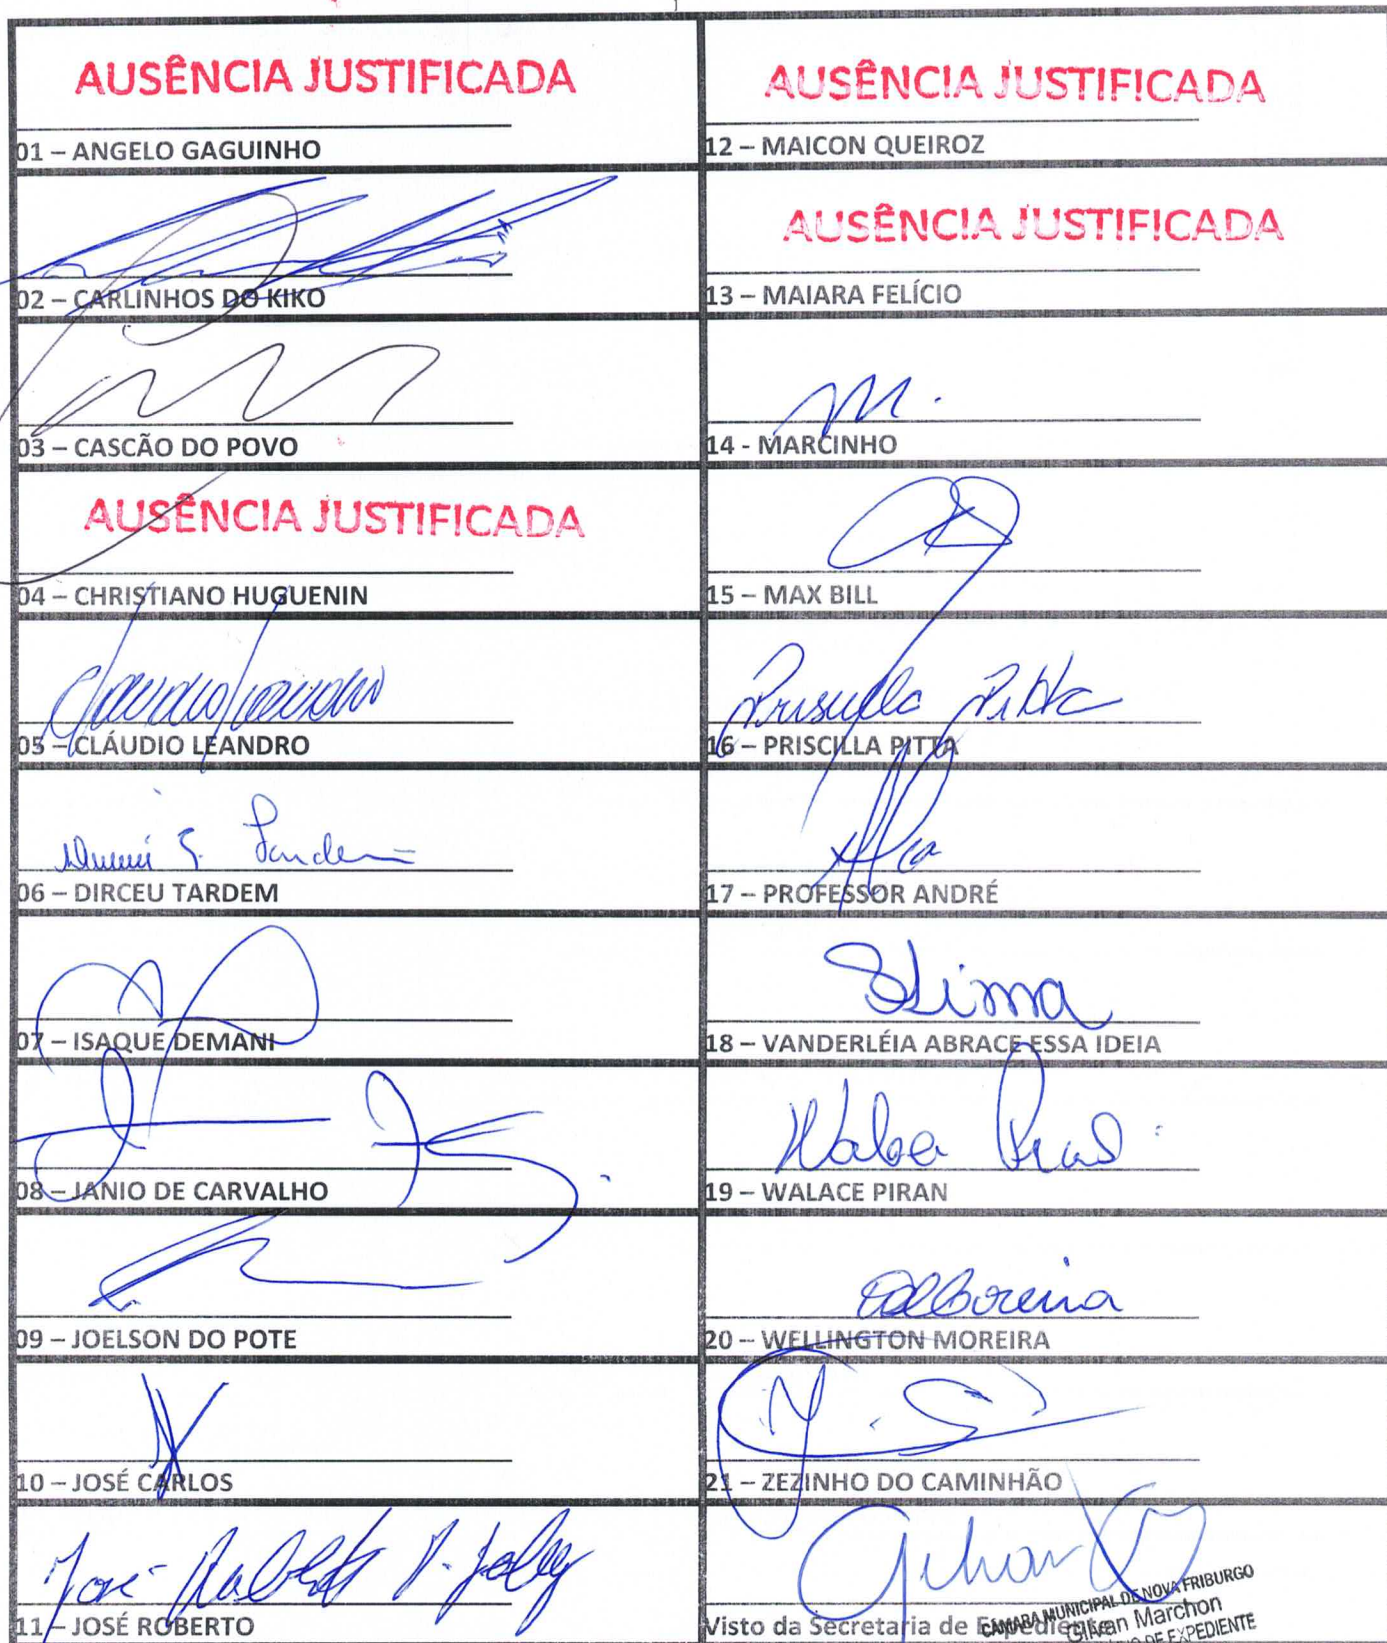 AUSÊNCIA JUSTIFICADA
01 – ANGELO GAGUINHO
02 – CARLINHOS DO KIKO
03 – CASCÃO DO POVO
AUSÊNCIA JUSTIFICADA
04 – CHRISTIANO HUGUENIN
05 – CLÁUDIO LEANDRO
06 – DIRCEU TARDEM
07 – ISAQUE DEMANI
08 – JANIO DE CARVALHO
09 – JOELSON DO POTE
10 – JOSÉ CARLOS
José Roberto
11 – JOSÉ ROBERTO
AUSÊNCIA JUSTIFICADA
12 – MAICON QUEIROZ
AUSÊNCIA JUSTIFICADA
13 – MAIARA FELÍCIO
M.
14 - MARCINHO
15 – MAX BILL
Priscilla Pitta
16 – PRISCILLA PITTA
17 – PROFESSOR ANDRÉ
Lima
18 – VANDERLÉIA ABRACE ESSA IDEIA
19 – WALACE PIRAN
20 – WELLINGTON MOREIRA
21 – ZEZINHO DO CAMINHÃO
Visto da Secretaria de Expediente
CÂMARA MUNICIPAL DE NOVA FRIBURGO
Gilvan Marchon
DE EXPEDIENTE